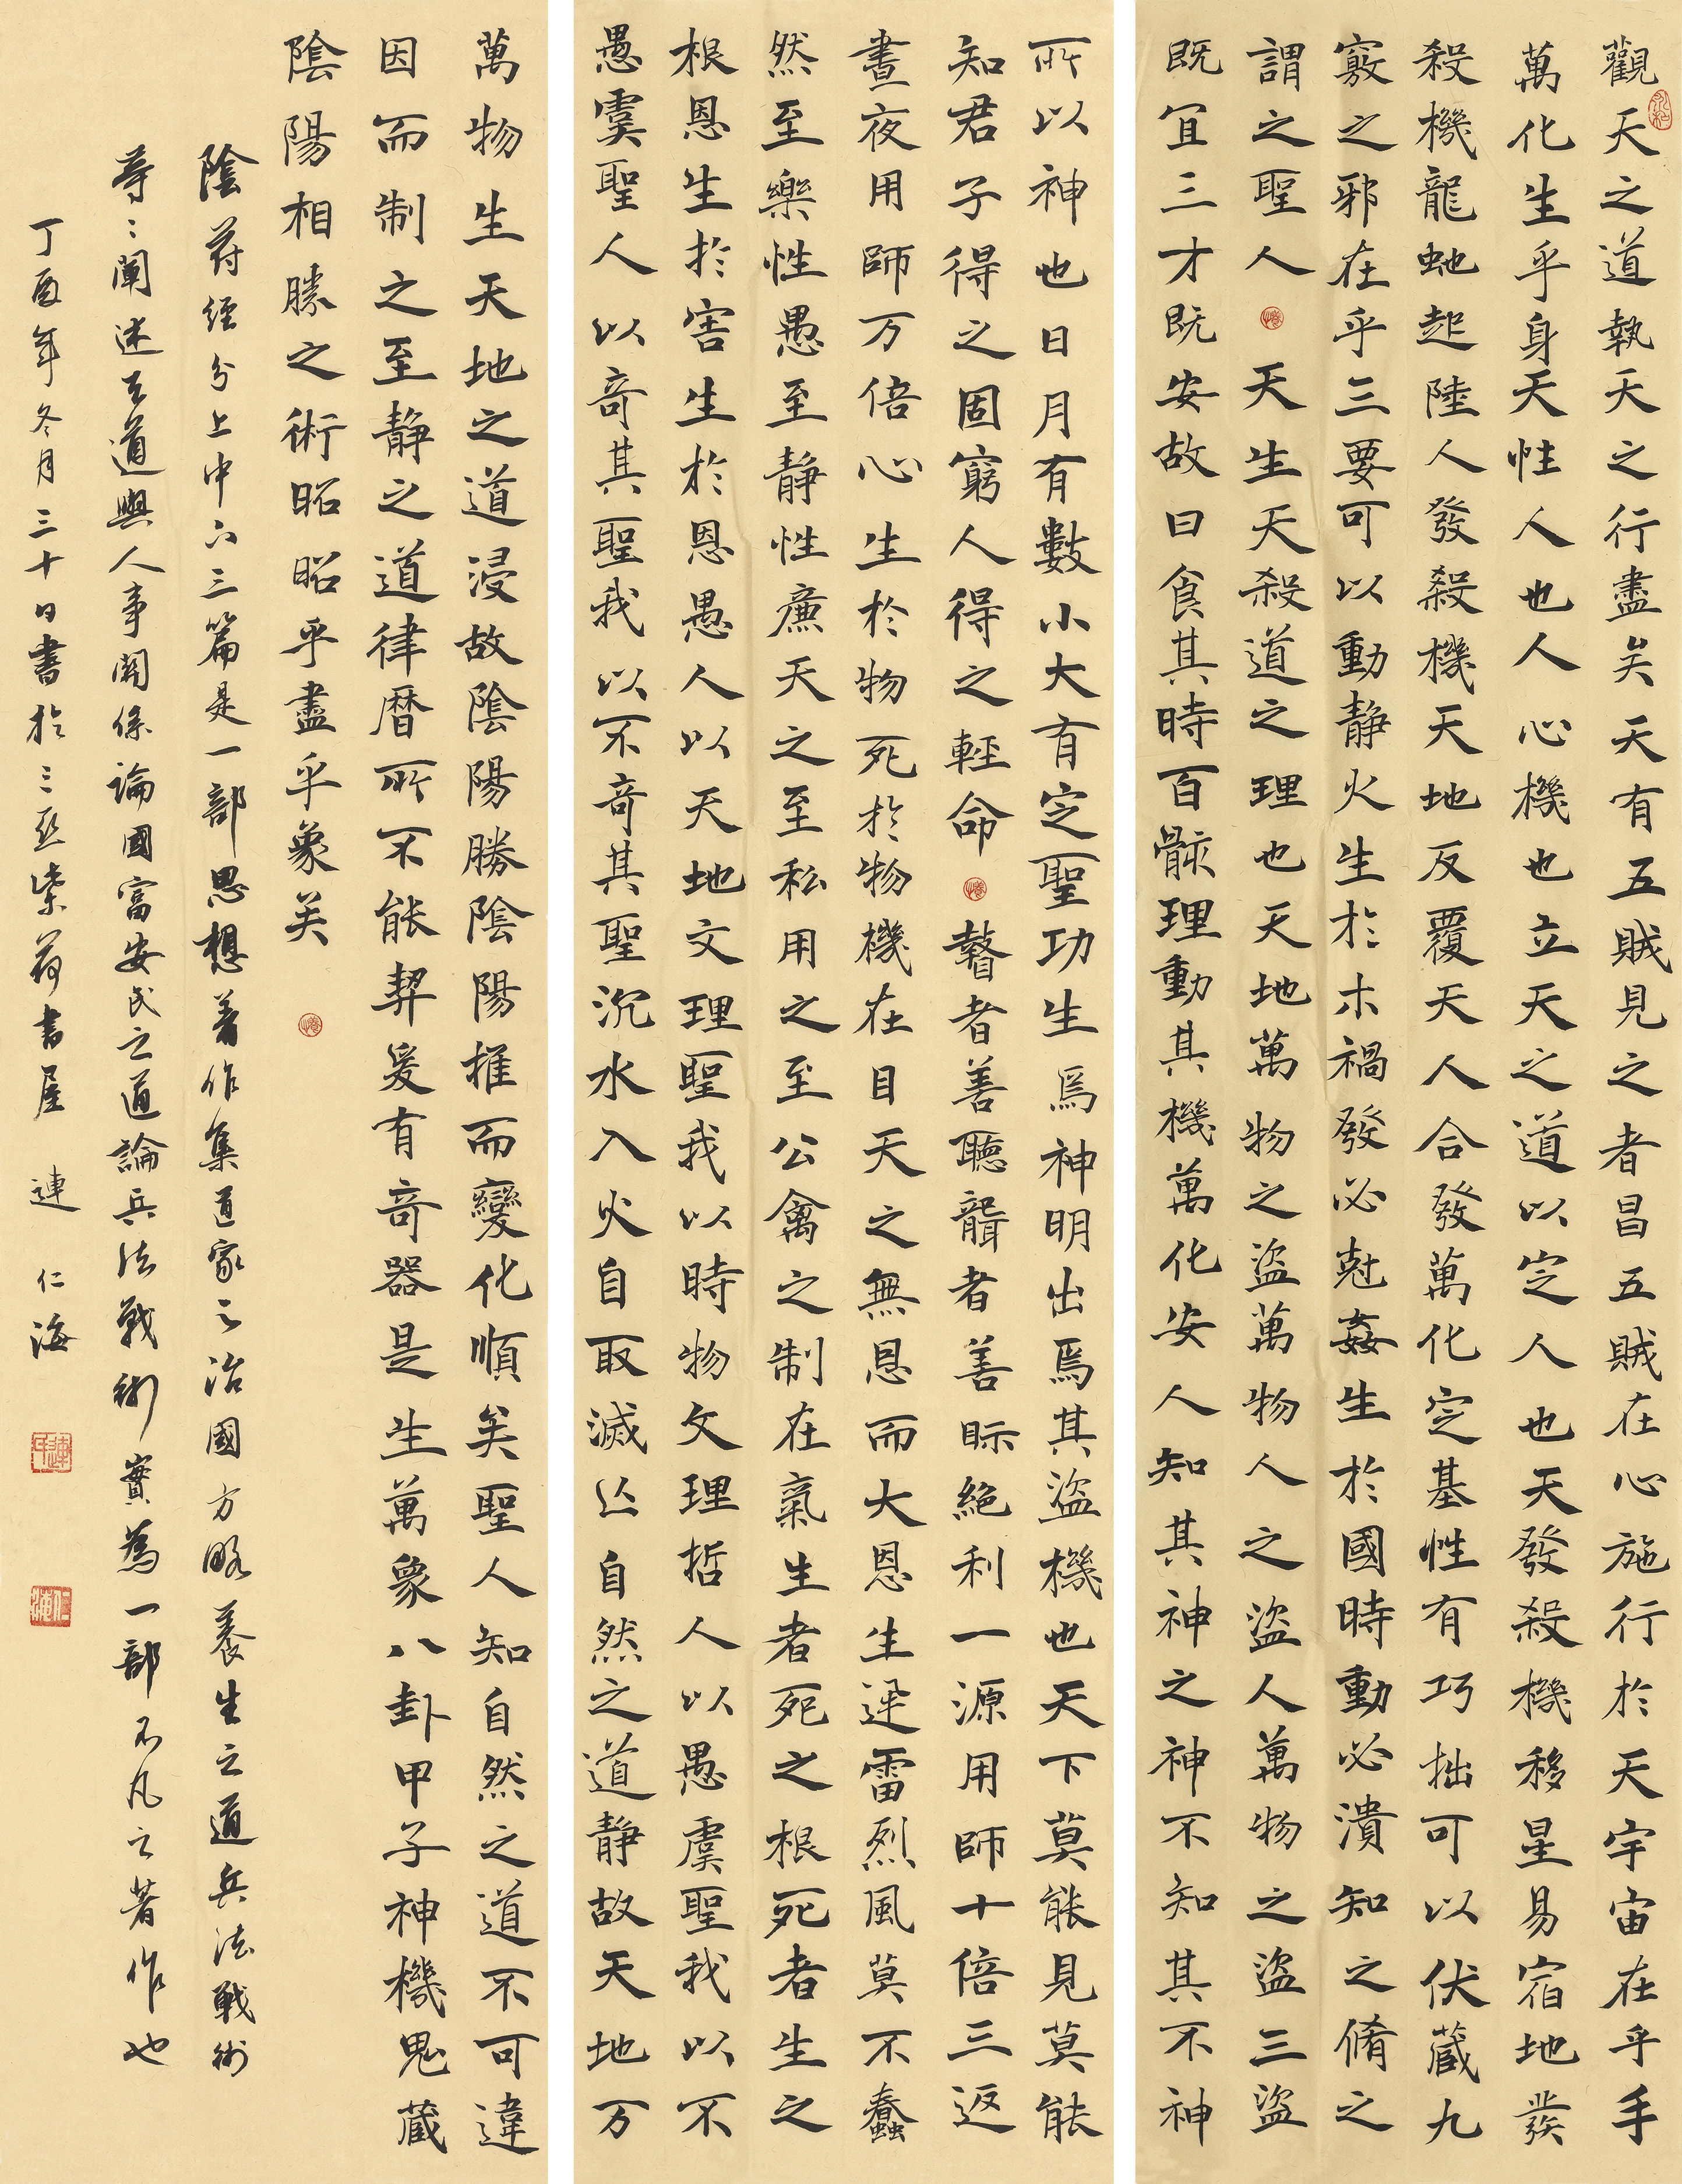 觀天之道執天之行盡矣天有五賊見之者昌五賊在心施行於天宇宙在乎手
萬化生乎身天性人也人心機也立天之道以定人也天發殺機移星易宿地發
殺機龍虵起陸人發殺機天地反覆天人合發萬化定基性有巧拙可以伏藏九
竅之邪在乎三要可以動静火生於木禍發必尅姦生於國時動必潰知之脩之
謂之聖人天生天殺道之理也天地萬物之盜萬物人之盜人萬物之盜三盜
既冝三才既安故曰食其時百骸理動其機萬化安人知其神之神不知其不神
所以神也日月有數小大有定聖功生焉神明出焉其盜機也天下莫能見莫能
知君子得之固窮人得之輕命瞽者善聽聾者善眎絶利一源用師十倍三返
晝夜用師万倍心生於物死於物機在目天之無恩而大恩生迅雷烈風莫不蠢
然至樂性愚至静性廉天之至私用之至公禽之制在氣生者死之根死者生之
根恩生於害害生於恩愚人以天地文理聖我以時物文理哲人以愚虞聖我以不
愚虞聖人以竒其聖我以不竒其聖沉水入火自取滅亡自然之道静故天地万
萬物生天地之道浸故陰陽勝陰陽推而變化順矣聖人知自然之道不可違
因而制之至静之道律暦所不能契爰有竒器是生萬象八卦甲子神機鬼藏
陰陽相勝之術昭昭乎盡乎象矣
陰符經分上中下三篇是一部思想著作集道家之治國方略養生之道兵法戰術
等:闡述天道與人事関係論國富安民之道論兵法戰術實為一部不凡之著作也
丁酉年冬月三十日書於三亞紫荷書屋 連 仁海